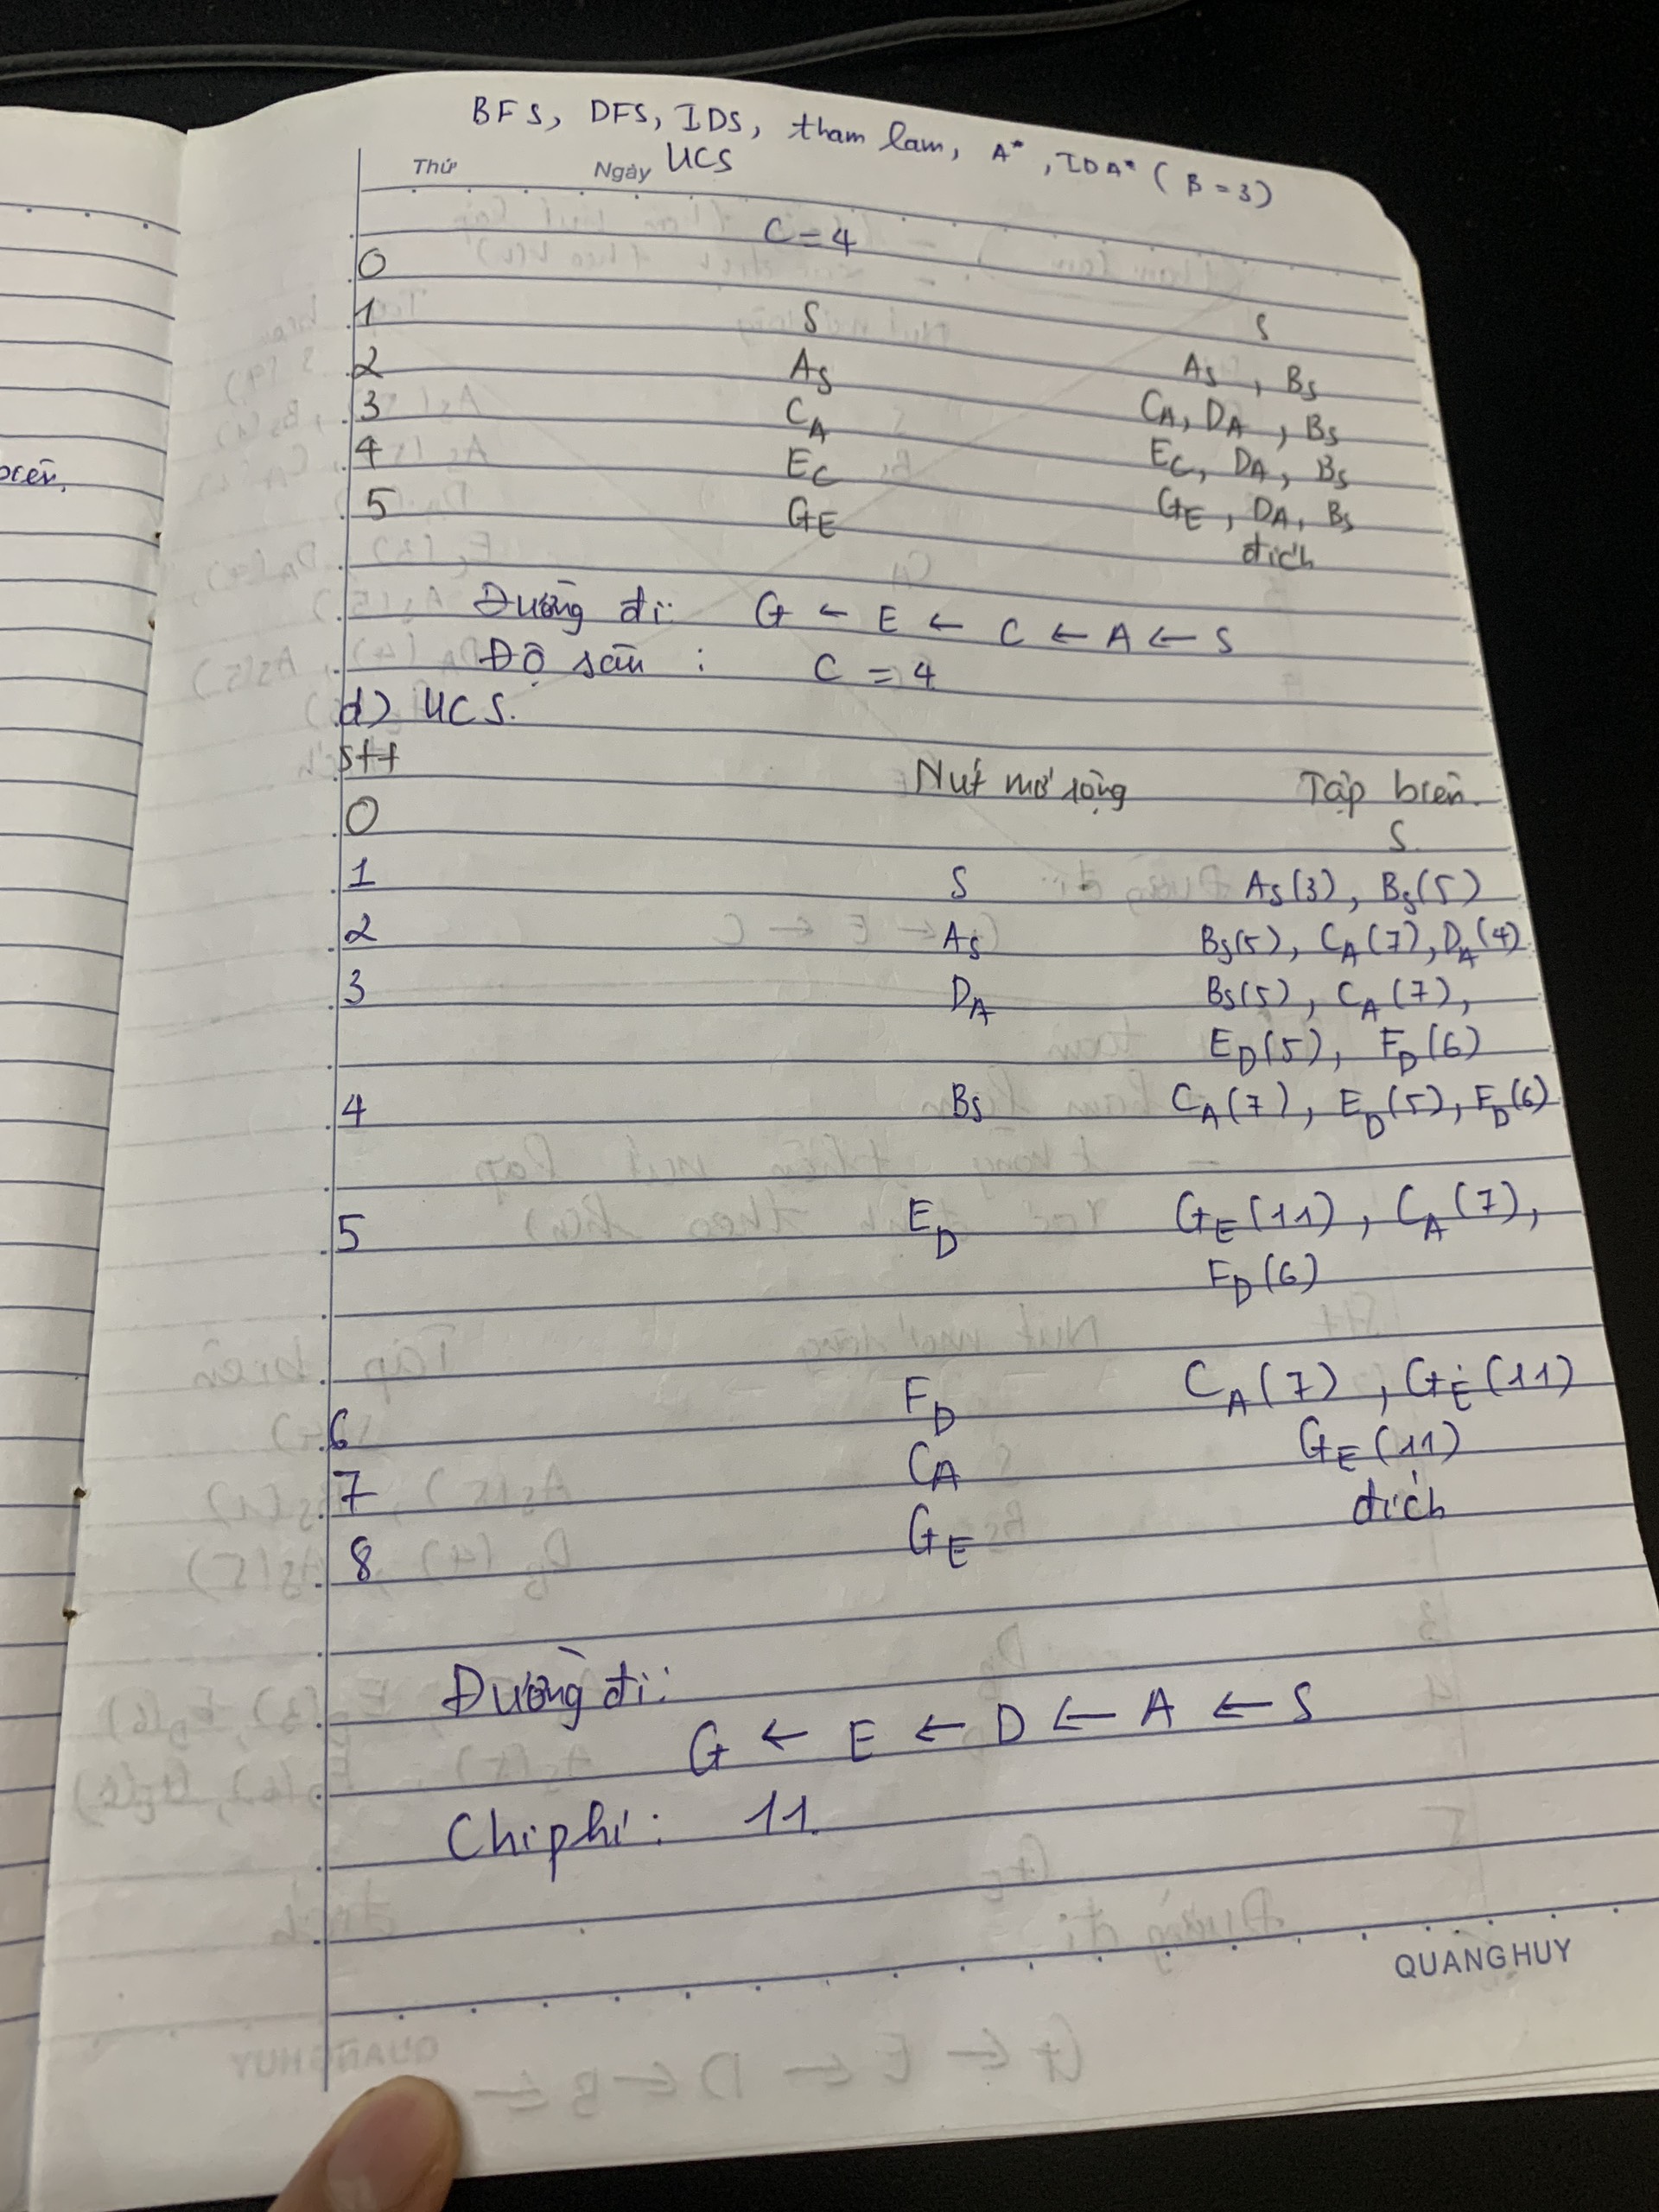 BFS, DFS, IDS, tham lam, A*, IDA* (β = 3)
Thứ Ngày UCS
C = 4
0
1 S S
2 AS AS, BS
3 CA CA, DA, BS
4 EC EC, DA, BS
5 GE GE, DA, BS
đích
Đường đi: G ← E ← C ← A ← S
Độ sâu : C = 4
d) UCS.
Stt Nút mở rộng Tập biên.
0 S
1 S AS(3), BS(5)
2 AS BS(5), CA(7), DA(4)
3 DA BS(5), CA(7),
ED(5), FD(6)
4 BS CA(7), ED(5), FD(6)
5 ED GE(11), CA(7),
FD(6)
6 FD CA(7), GE(11)
7 CA GE(11)
8 GE đích
Đường đi:
G ← E ← D ← A ← S
Chi phí: 11.
QUANG HUY
biên.